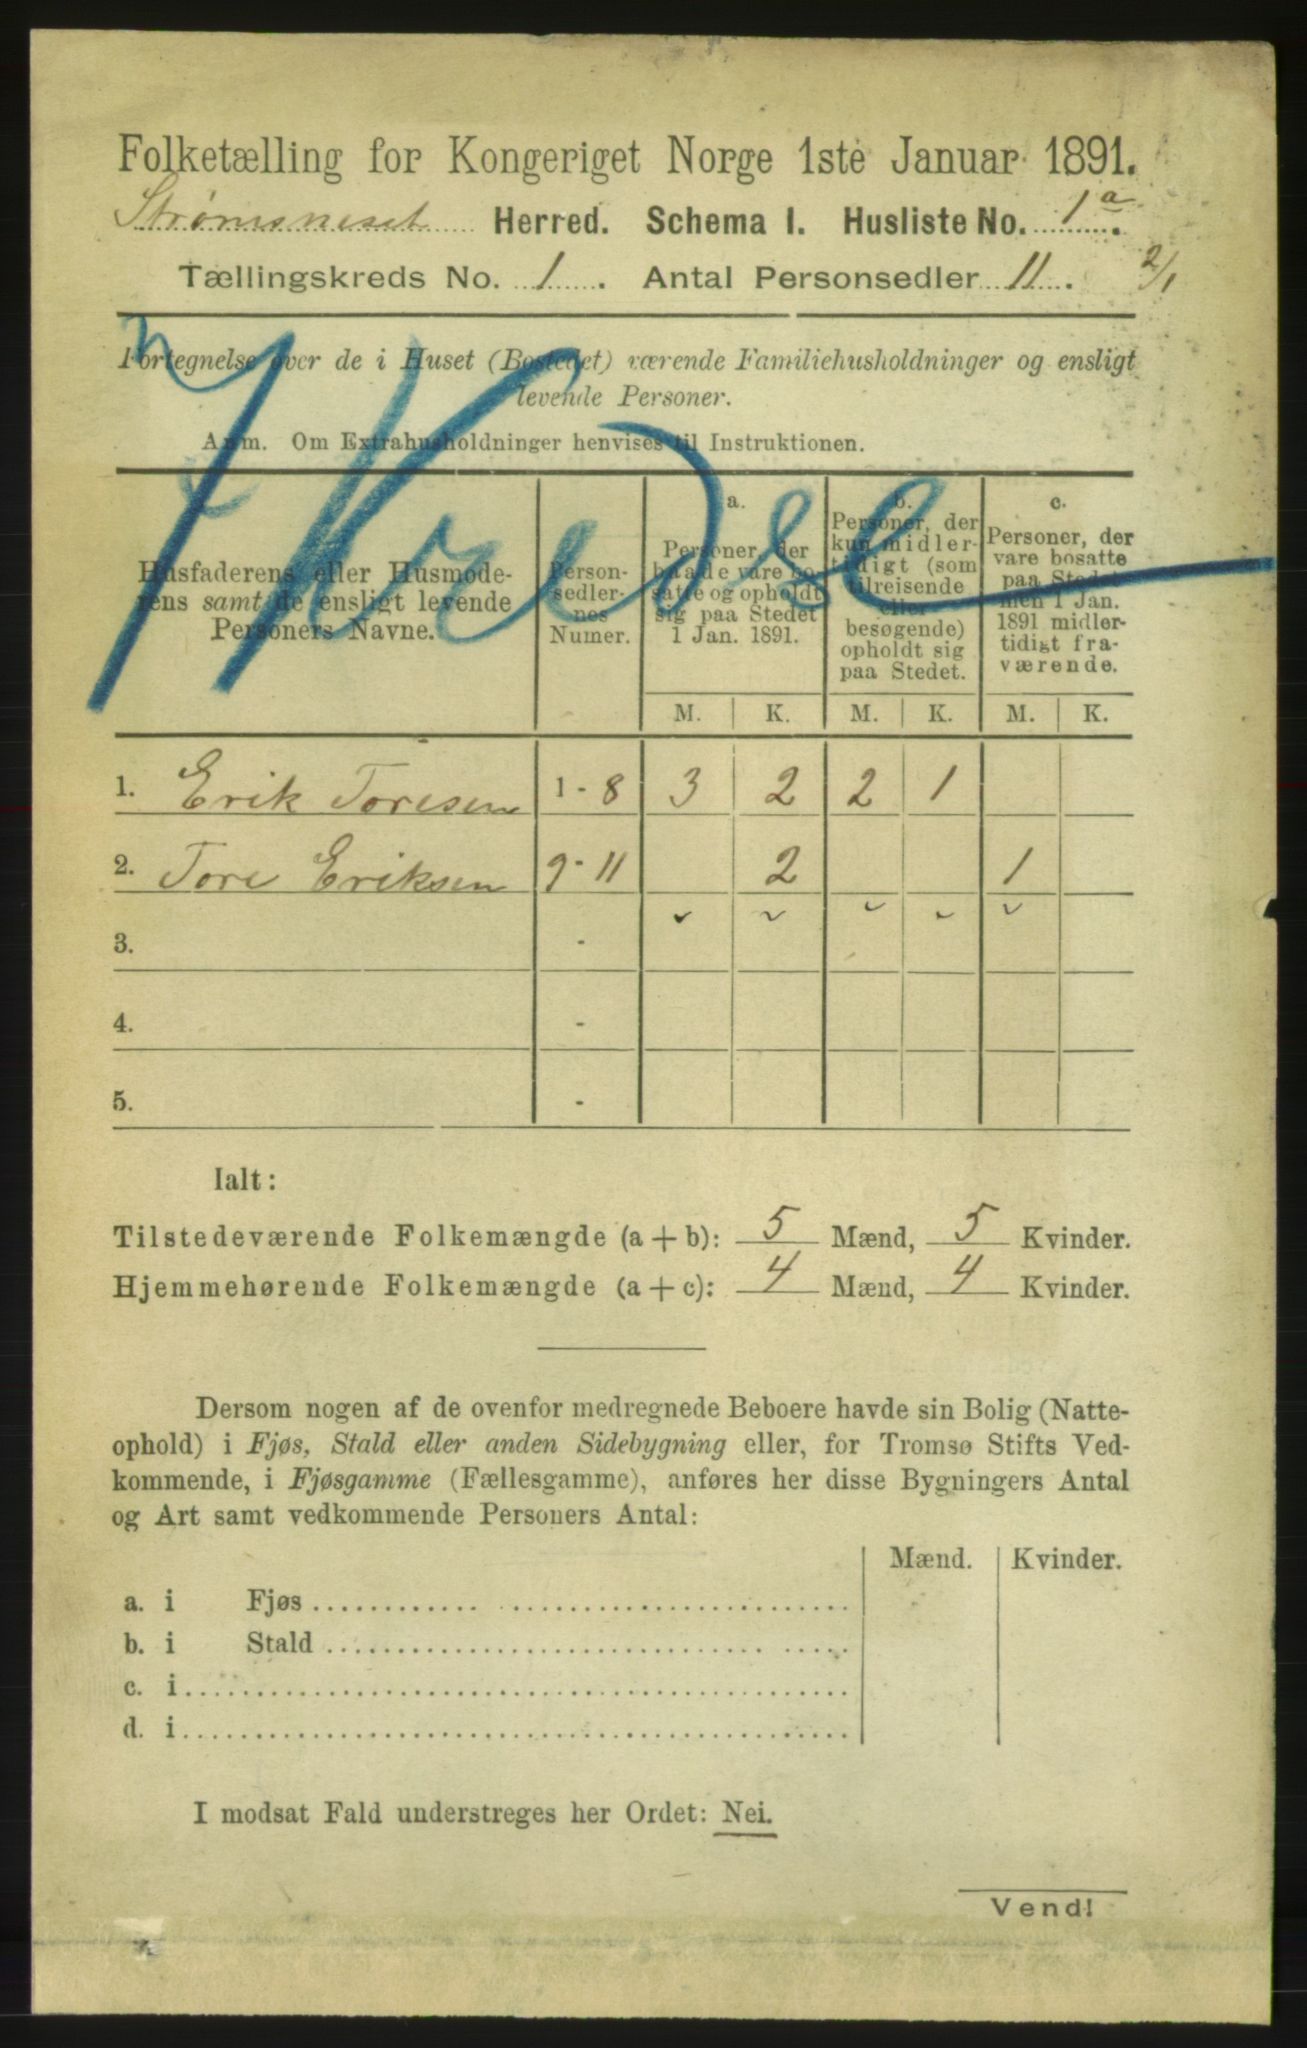 Folketælling for Kongeriget Norge 1ste Januar 1891.
Strømsneset Herred. Schema I. Husliste No. 1a.
Tællingskreds No. 1. Antal Personsedler 11. 2/1
Fortegnelse over de i Huset (Bostedet) værende Familiehusholdninger og ensligt
levende Personer.
Anm. Om Extrahusholdninger henvises til Instruktionen.
1 Kreds
Husfaderens eller Husmode-
rens samt de ensligt levende
Personers Navne.
Person-
sedler-
nes
Numer.
a.
Personer, der
baade vare bo-
satte og opholdt
sig paa Stedet
1 Jan. 1891.
b.
Personer, der
kun midler-
tidigt (som
tilreisende
eller
besøgende)
opholdt sig
paa Stedet.
c.
Personer, der
vare bosatte
paa Stedet
men 1 Jan.
1891 midler-
tidigt fra-
værende.
M. K. M. K. M. K.
1. Erik Toresen 1 - 8 3 2 2 1
2. Tore Eriksen 9 - 11 2 1
3. -
4. -
5. -
Ialt:
Tilstedeværende Folkemængde (a + b): 5 Mænd, 5 Kvinder.
Hjemmehørende Folkemængde (a + c): 4 Mænd, 4 Kvinder.
Dersom nogen af de ovenfor medregnede Beboere havde sin Bolig (Natte-
ophold) i Fjøs, Stald eller anden Sidebygning eller, for Tromsø Stifts Ved-
kommende, i Fjøsgamme (Fællesgamme), anføres her disse Bygningers Antal
og Art samt vedkommende Personers Antal:
Mænd. Kvinder.
a. i Fjøs
b. i Stald
c. i
d. i
I modsat Fald understreges her Ordet: Nei.
Vend!